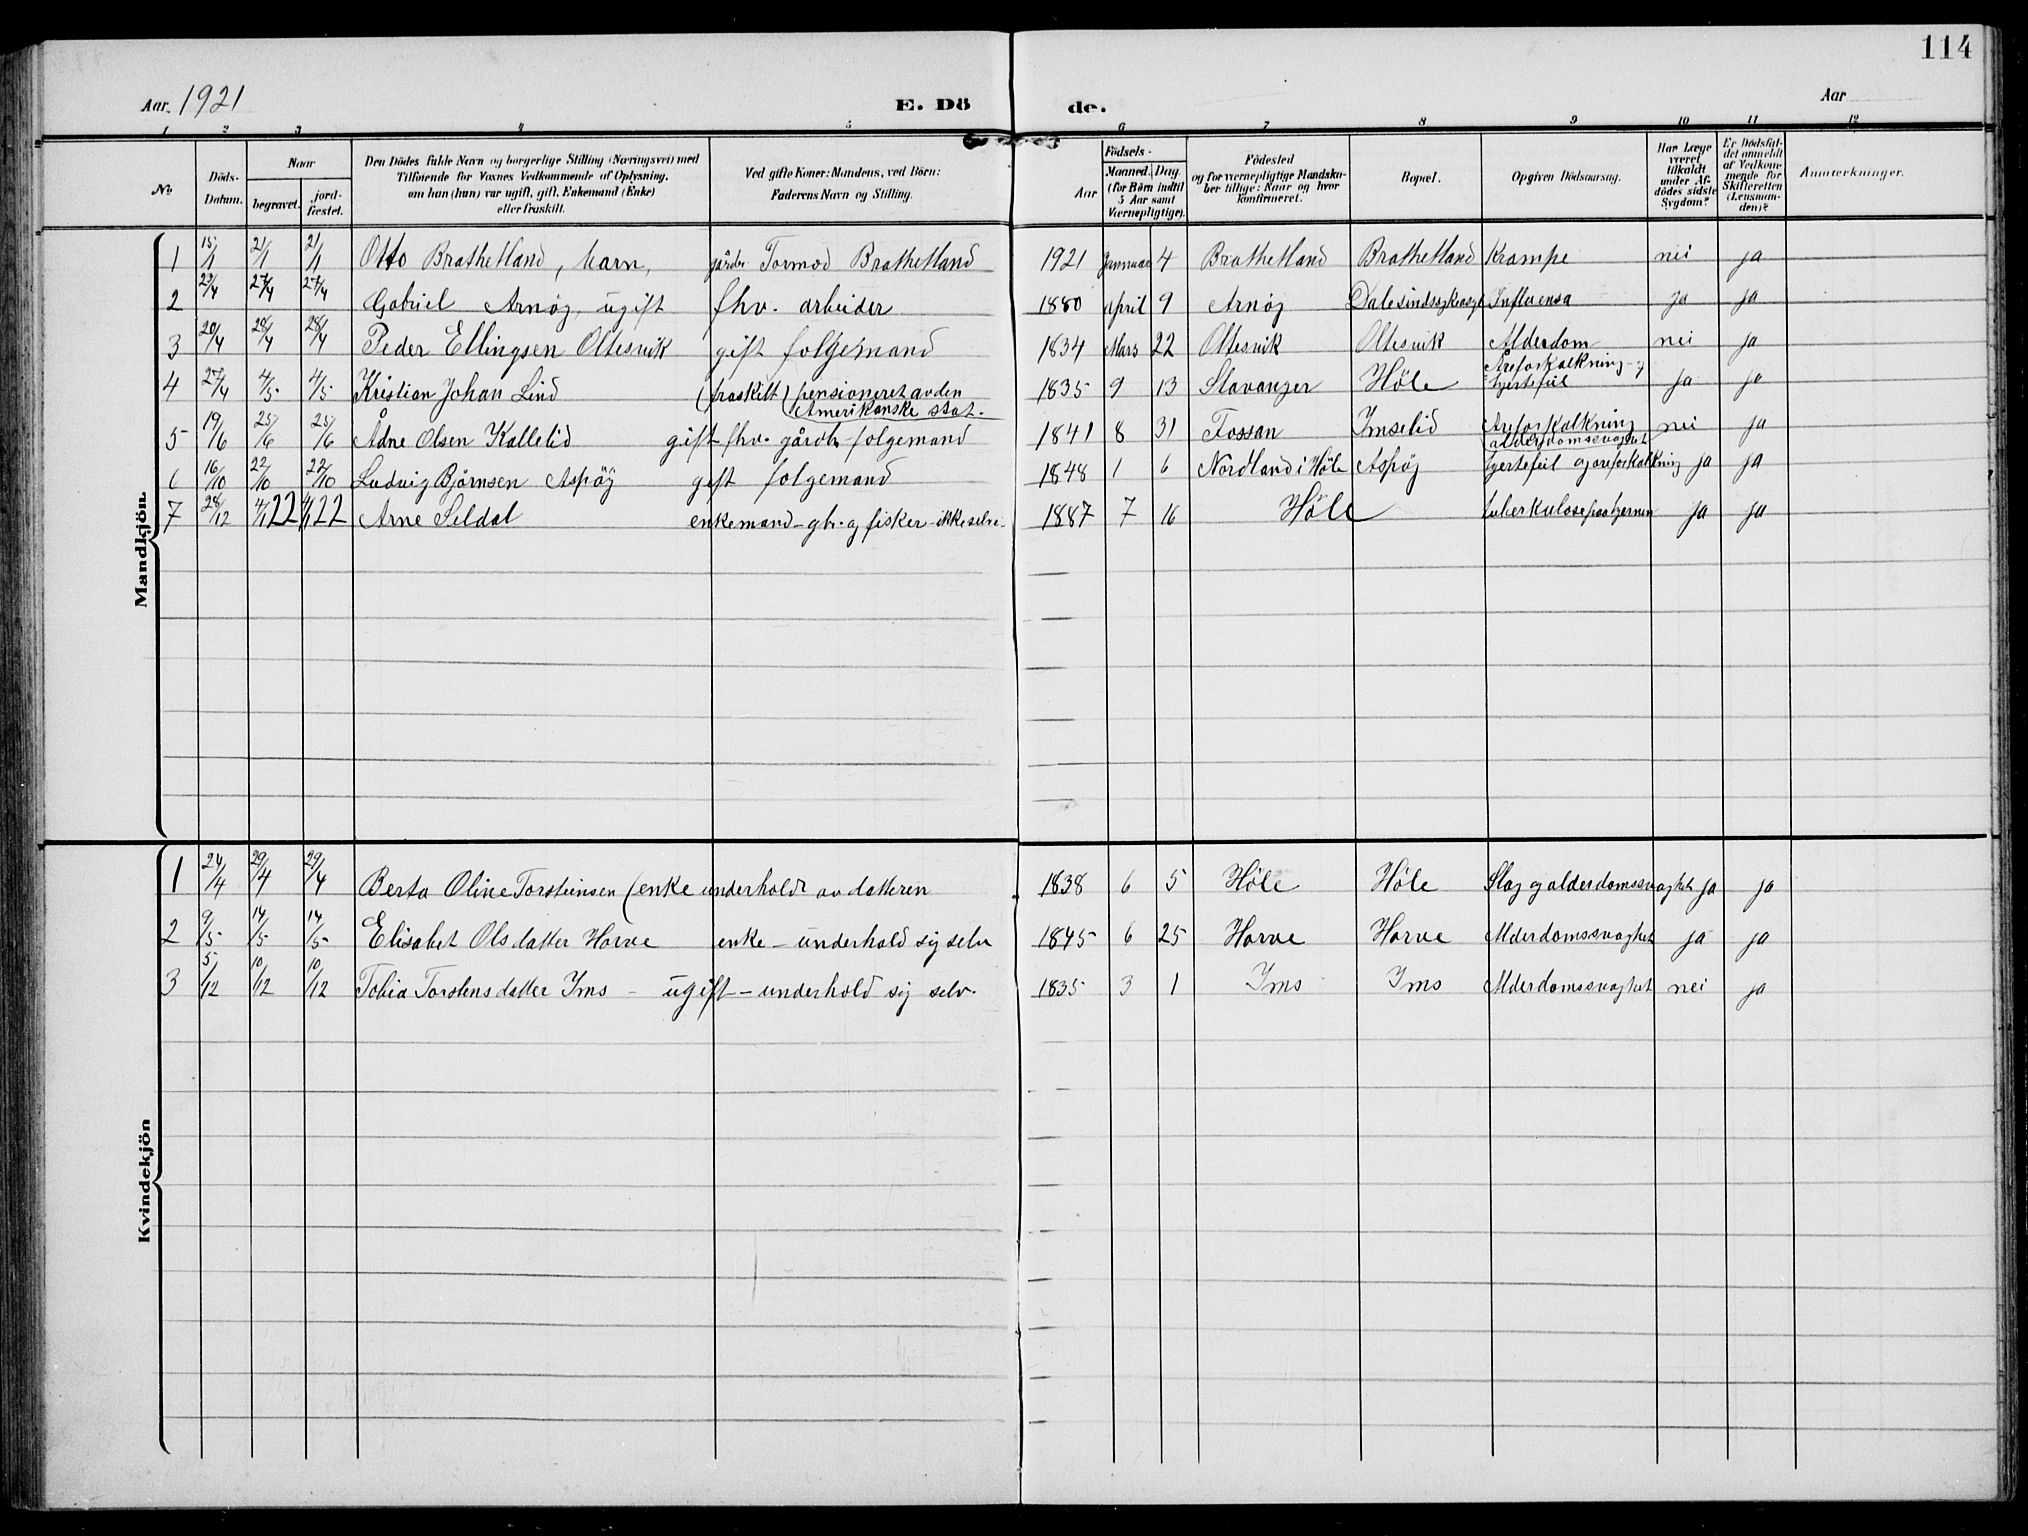 114
Aar 1921 E. Dö de. Aar
1 2 3 4 5 6 7 8 9 10 11 12
No
Döds-Datum.
Naar
begravet.
jord-fæstet.
Den Dödes fulde Navn og borgerlige Stilling (Næringsvei) med
Tilföiende for Voxnes Vedkommende af Oplysning,
om han (hun) var ugift, gift, Enkemand (Enke)
eller fraskilt.
Ved gifte Koner: Mandens, ved Börn:
Faderens Navn og Stilling.
Födsels-
Aar
Maaned. Dag
(for Börn indtil
5 Aar samt
Værnepligtige).
Födested
og for værnepligtige Mandska-
ber tillige: Naar og hvor
konfirmeret.
Bopæl.
Opgiven Dödsaarsag.
Har Læge
været
tilkaldt
under Af-
dödes sidste
Sygdom?
Er Dödsfal-
det anmeldt
af Vedkom-
mende for
Skifteretten
(Lensman-
den)?
Anmærkninger.
Mandkjön
1 15/1 21/1 21/1 Otto Brathetland, barn, gårdbr Tormod Brathetland 1921 Januar 4 Brathetland Brathetland Krampe nei ja
2 23/4 27/4 27/4 Gabriel Arnøy, ugift fhv. arbeider 1880 april 9 Arnøy Dale sindssykeasyl Influensa ja ja
3 20/4 28/4 28/4 Peder Ellingsen Oltesvik gift folgemand 1834 Mars 22 Oltesvik Oltesvik Alderdom nei ja
4 27/4 4/5 4/5 Kristian Johan Lind (fraskilt) pensioneret av den
Amerikanske stat. 1835 9 13 Stavanger Höle Åreforkalkning og
hjertefeil ja ja
5 19/6 25/6 25/6 Ådne Olsen Kallelid gift fhv. gårdb. folgemand 1841 8 31 Fossan Imselid Åreforkalkning
alderdomssvaghet nei ja
6 16/10 22/10 22/10 Ludvig Bjørnsen Aspøy gift folgemand 1848 1 6 Nordland i Höle Aspøy hjertefeil og areforkalkning ja ja
7 28/12 4/1 22 4/1 22 Arne Seldal enkemand - gbr. og fisker - ikke selve. 1887 7 16 Höle tuberkulose paa hjernen ja ja
Kvindekjön
1 24/4 29/4 29/4 Berta Oline Torsteinsen (enke underholdt av datteren 1838 6 5 Höle Höle Slag og alderdomssvaghet ja ja
2 9/5 14/5 14/5 Elisabet Olsdatter Horve enke - underhold sig selv 1845 6 25 Horve Horve Alderdomssvaghet ja ja
3 5/12 10/12 10/12 Tobia Torstensdatter Ims - ugift - underhold sig selv. 1835 3 1 Ims Ims Alderdomssvaghet nei ja